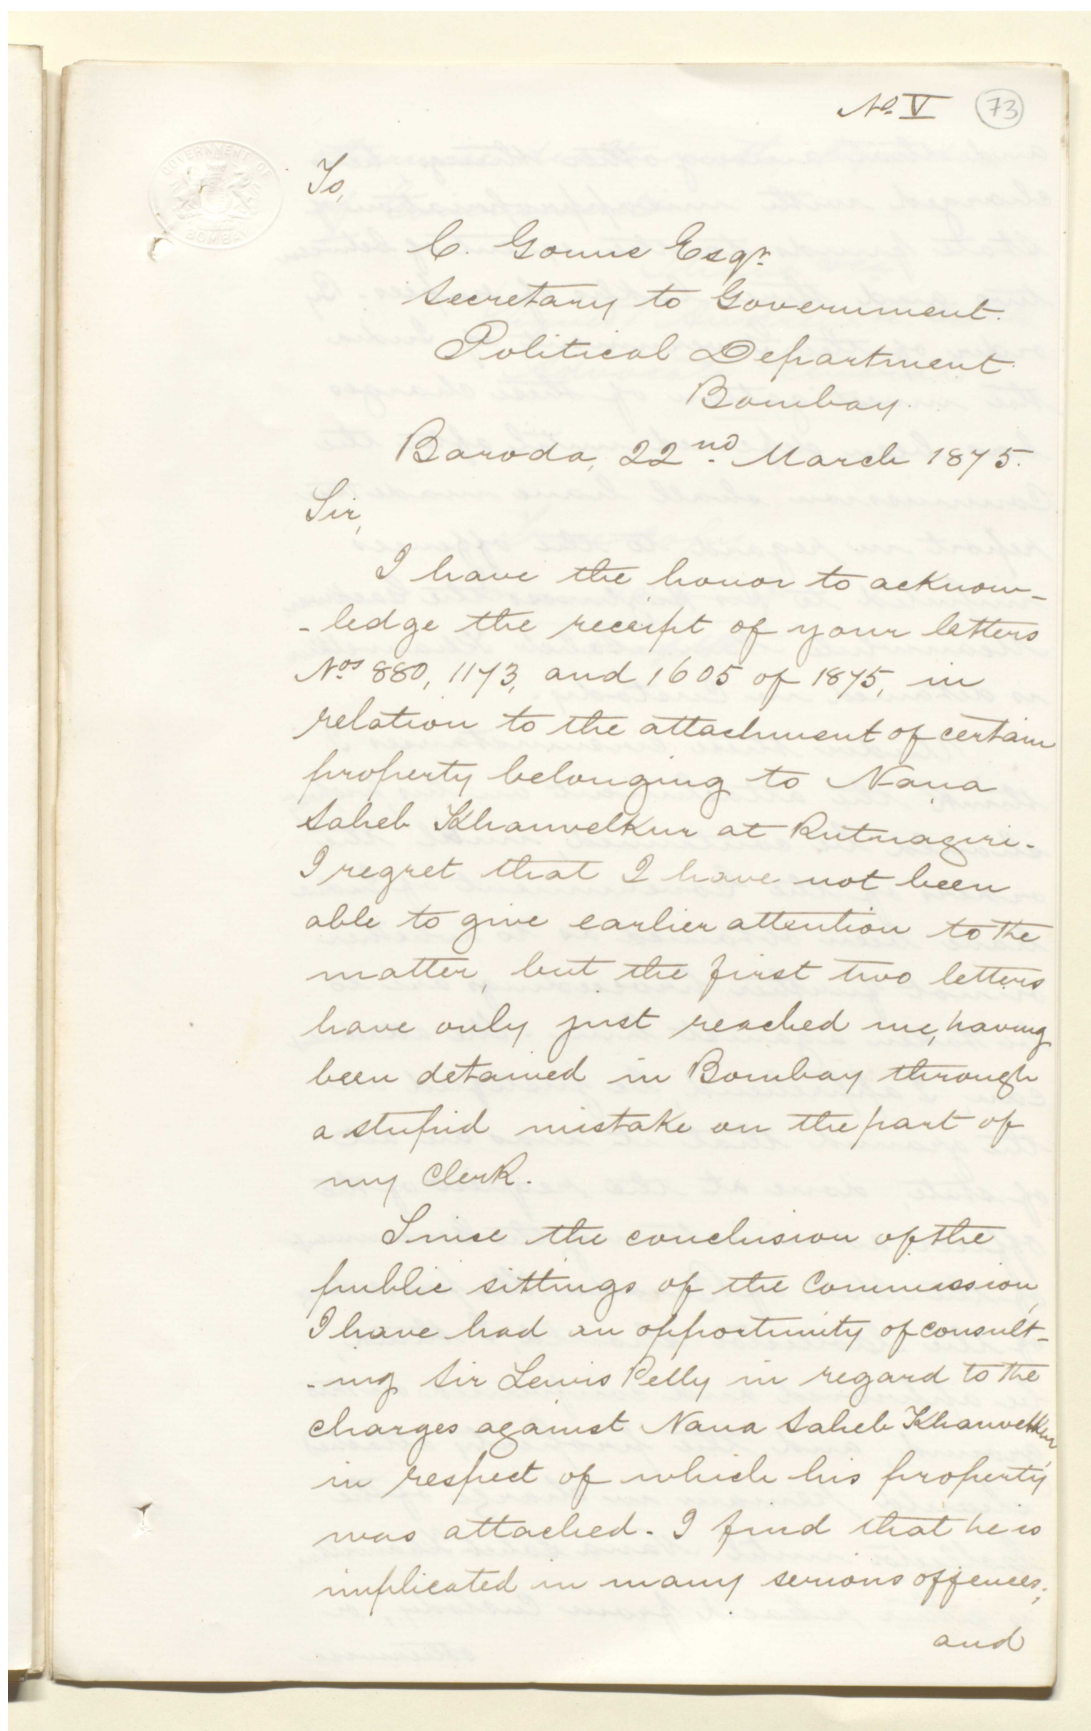 No. V 73
GOVERNMENT OF
BOMBAY
To,
C. Gonne Esqr.
Secretary to Government.
Political Department
Bombay.
Baroda, 22nd. March 1875.
Sir,
I have the honor to acknow-
-ledge the receipt of your letters
Nos 880, 1173, and 1605 of 1875, in
relation to the attachment of certain
property belonging to Nana
Saheb Khanvelkur at Rutnagiri.
I regret that I have not been
able to give earlier attention to the
matter, but the first two letters
have only just reached me, having
been detained in Bombay through
a stupid mistake on the part of
my Clerk.
Since the conclusion of the
public sittings of the Commission,
I have had an opportunity of consult-
-ing Sir Lewis Pelly in regard to the
charges against Nana Saheb Khanvelkur
in respect of which his property
was attached. I find that he is
implicated in many serious offences;
and